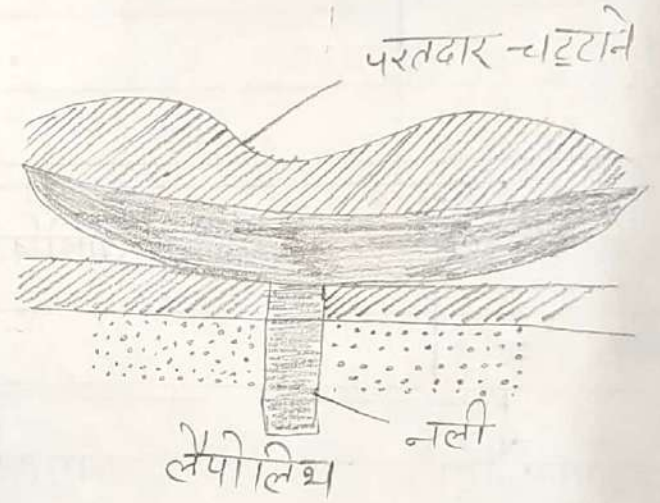 परतदार चट्टाने
नली
लैपोलिथ